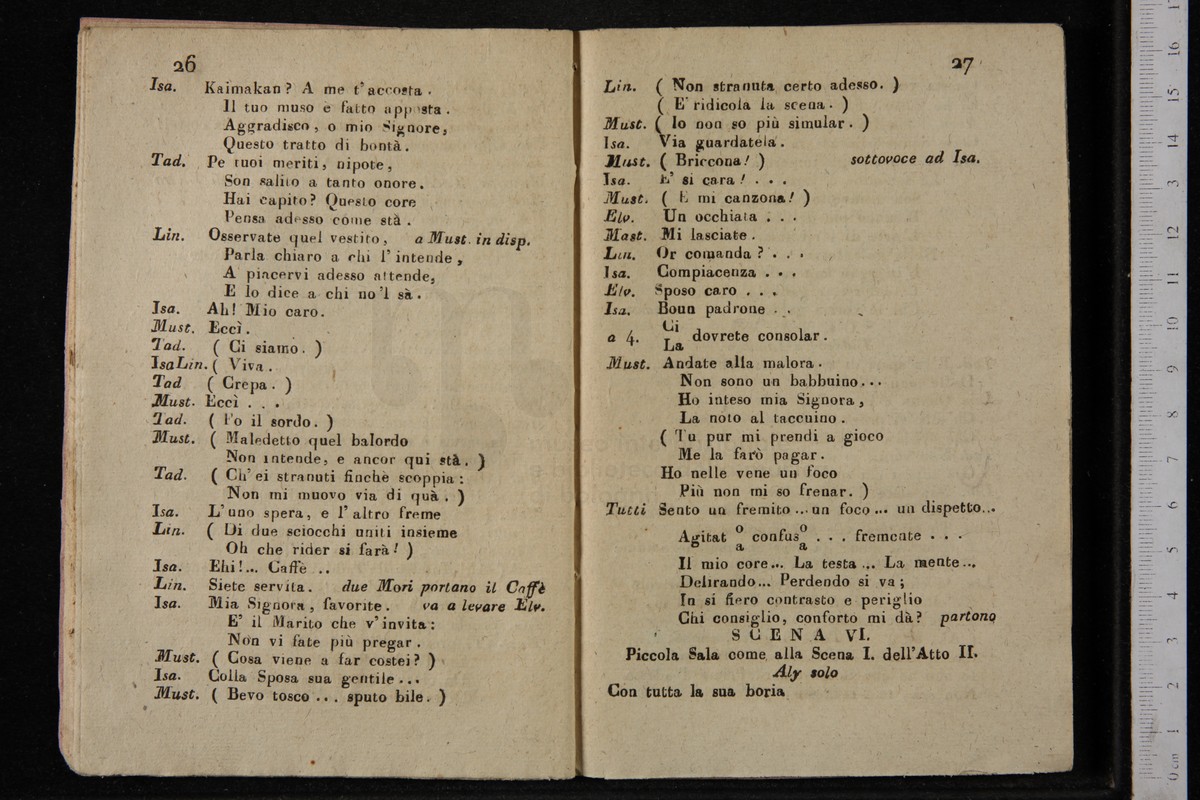 26
Isa. Kaimakan? A me t'accosta.
Il tuo muso è fatto apposta.
Aggradisco, o mio Signore,
Questo tratto di bontà.
Tad. Pe tuoi meriti, nipote,
Son salito a tanto onore.
Hai capito? Questo core
Pensa adesso come stà.
Lin. Osservate quel vestito, a Must. in disp.
Parla chiaro a chi l'intende,
A piacervi adesso attende,
E lo dice a chi no'l sà.
Isa. Ah! Mio caro.
Must. Eccì.
Tad. ( Ci siamo. )
Isa Lin. ( Viva.
Tad ( Crepa. )
Must. Eccì . . .
Tad. ( Fo il sordo. )
Must. ( Maledetto quel balordo
Non intende, e ancor qui stà. )
Tad. ( Ch'ei stranuti finchè scoppia:
Non mi muovo via di quà. )
Isa. L'uno spera, e l'altro freme
Lin. ( Di due sciocchi uniti insieme
Oh che rider si farà! )
Isa. Ehi!... Caffè ..
Lin. Siete servita. due Mori portano il Caffè
Isa. Mia Signora, favorite. va a levare Elv.
E' il Marito che v'invita:
Non vi fate più pregar.
Must. ( Cosa viene a far costei? )
Isa. Colla Sposa sua gentile...
Must. ( Bevo tosco ... sputo bile. )
27
Lin. ( Non stranuta certo adesso. )
( E' ridicola la scena. )
Must. ( Io non so più simular. )
Isa. Via guardatela.
Must. ( Briccona! ) sottovoce ad Isa.
Isa. E' si cara! . . .
Must. ( E mi canzona! )
Elv. Un occhiata . . .
Mast. Mi lasciate.
Lin. Or comanda? . . .
Isa. Compiacenza . . .
Elv. Sposo caro . . .
Isa. Boun padrone . .
a 4. Ci
La dovrete consolar.
Must. Andate alla malora.
Non sono un babbuino...
Ho inteso mia Signora,
La noto al taccuino.
( Tu pur mi prendi a gioco
Me la farò pagar.
Ho nelle vene un foco
Più non mi so frenar. )
Tutti Sento un fremito ... un foco ... un dispetto...
Agitat o/a confus o/a . . . fremente . . .
Il mio core... La testa ... La mente...
Delirando... Perdendo si va;
In sì fiero contrasto e periglio
Chi consiglio, conforto mi dà? partono
SCENA VI.
Piccola Sala come alla Scena I. dell'Atto II.
Aly solo
Con tutta la sua boria
0 cm 1 2 3 4 5 6 7 8 9 10 11 12 13 14 15 16 17